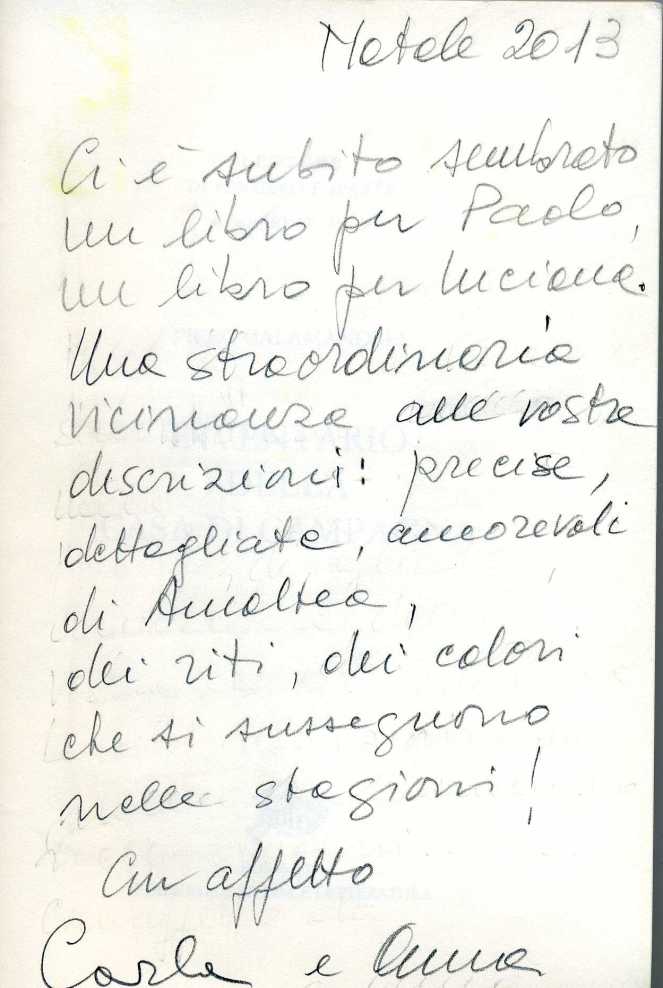 Natale 2013
Ci è subito sembrato
un libro per Paolo,
un libro per Luciana.
Una straordinaria
vicinanza alle vostre
descrizioni: precise,
dettagliate, amorevoli
di Amaltea,
dei riti, dei colori
che si susseguono
nelle stagioni!
Con affetto
Carla e Anna